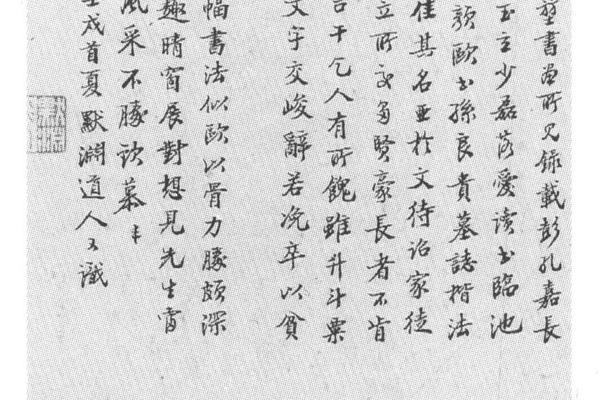 堃書畫所見錄載彭孔嘉長
玉立少磊落愛讀書臨池
顏歐書孫良貴墓誌楷法
佳其名亞於文待詔家徒
立所交多賢豪長者不肯
言干乞人有所餽雖升斗粟
文字交峻辭若浼卒以貧
幅書法似歐以骨力勝頗深
趣晴窗展對想見先生當
風采不勝欽慕丰
壬戌首夏默淵道人又識